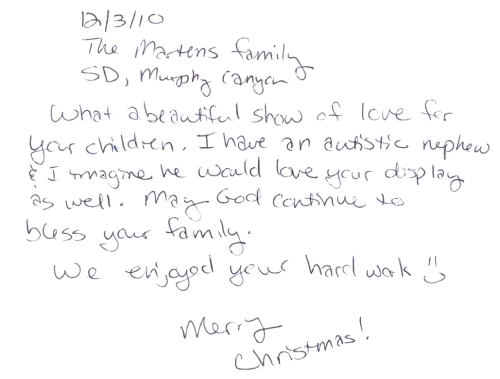 12/3/10
The Martens family
SD, Murphy Canyon
What a beautiful show of love for
your children. I have an autistic nephew
& I imagine he would love your display
as well. May God continue to
bless your family.
We enjoyed your hard work
Merry
Christmas!